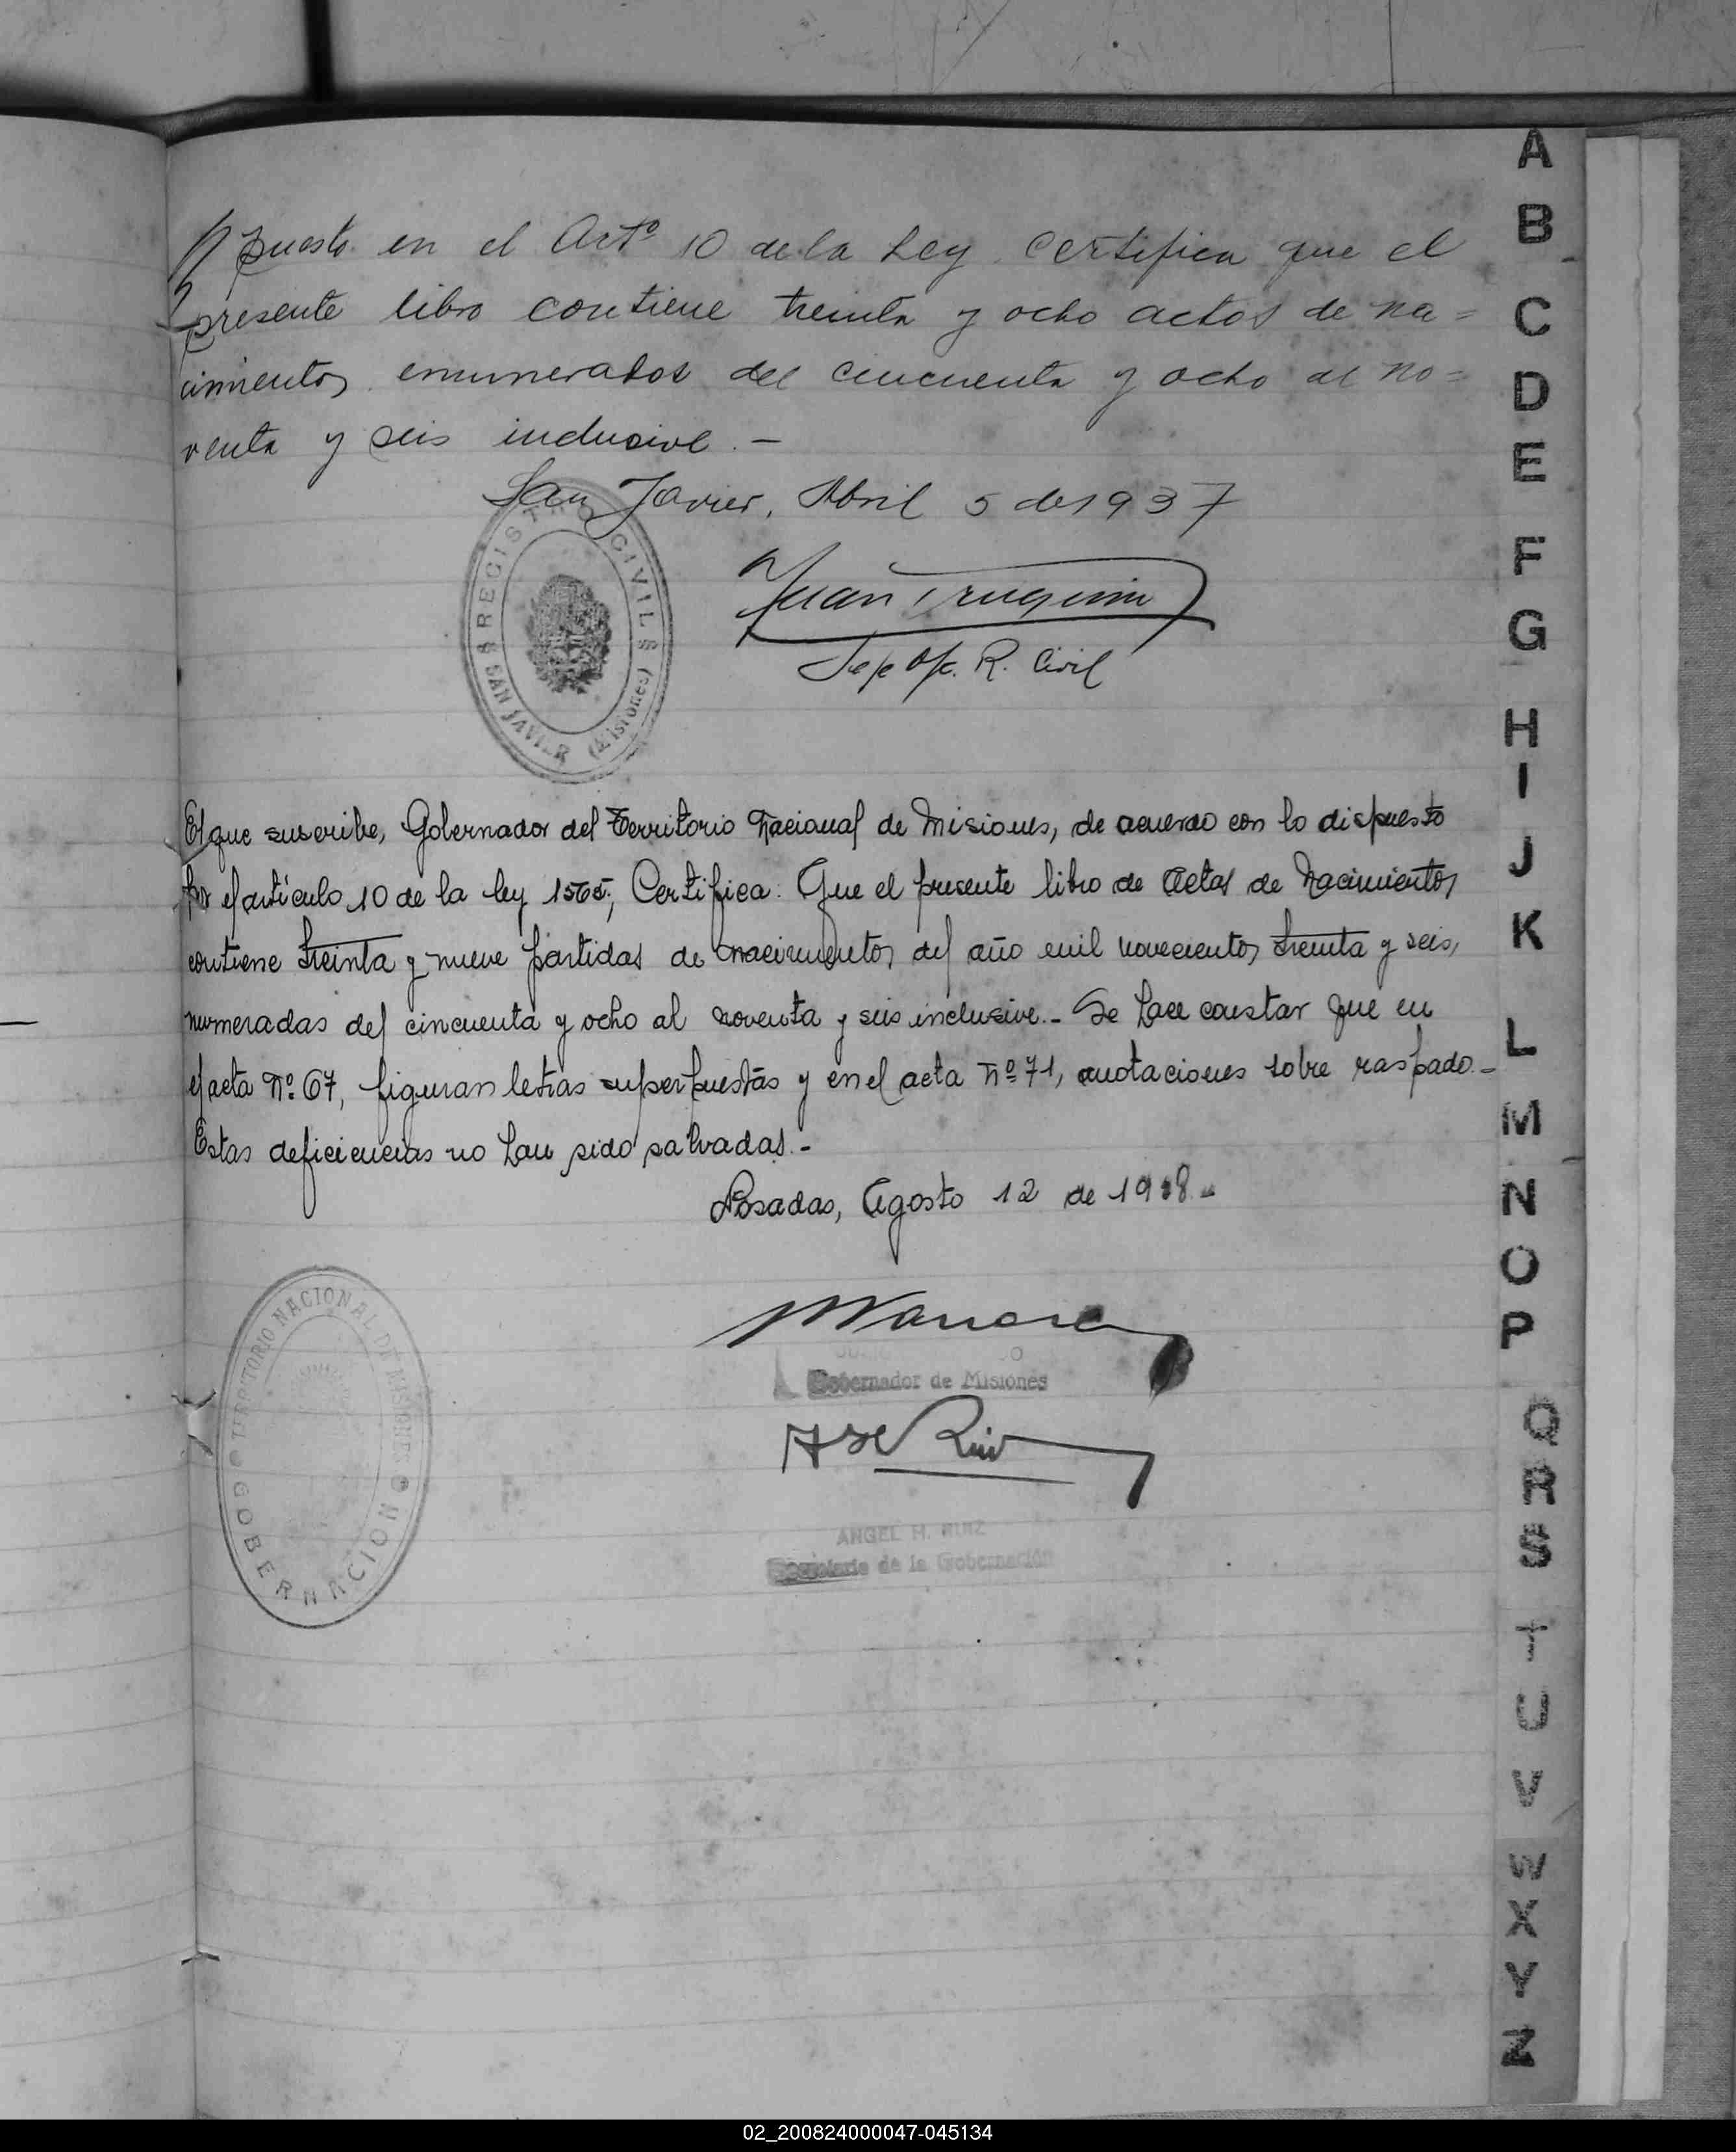 puesto en el Artº 10 de la Ley certifica que el
presente libro contiene treinta y ocho actos de na=
cimientos enumerados del cincuenta y ocho al no=
venta y seis inclusive.—
San Javier, Abril 5 de 1937
REGISTRO CIVIL
SAN JAVIER (Misiones)
Juan
Jefe Ofc. R. Civil
El que suscribe, Gobernador del Territorio Nacional de Misiones, de acuerdo con lo dispuesto
por el artículo 10 de la ley 1565; Certifica: Que el presente libro de Actas de Nacimientos
contiene treinta y nueve partidas de nacimientos del año mil novecientos treinta y seis,
numeradas del cincuenta y ocho al noventa y seis inclusive.- Se hace constar que en
el acta Nº 67, figuran letras superpuestas y en el acta Nº 71, anotaciones sobre raspado.-
Estas deficiencias no han sido salvadas.-
Posadas, Agosto 12 de 19
TERRITORIO NACIONAL DE MISIONES
GOBERNACION
Gobernador de Misiones
ANGEL H. RUIZ
Secretario de la Gobernación
A
B
C
D
E
F
G
H
I
J
K
L
M
N
O
P
Q
R
S
T
U
V
W
X
Y
Z
02_200824000047-045134